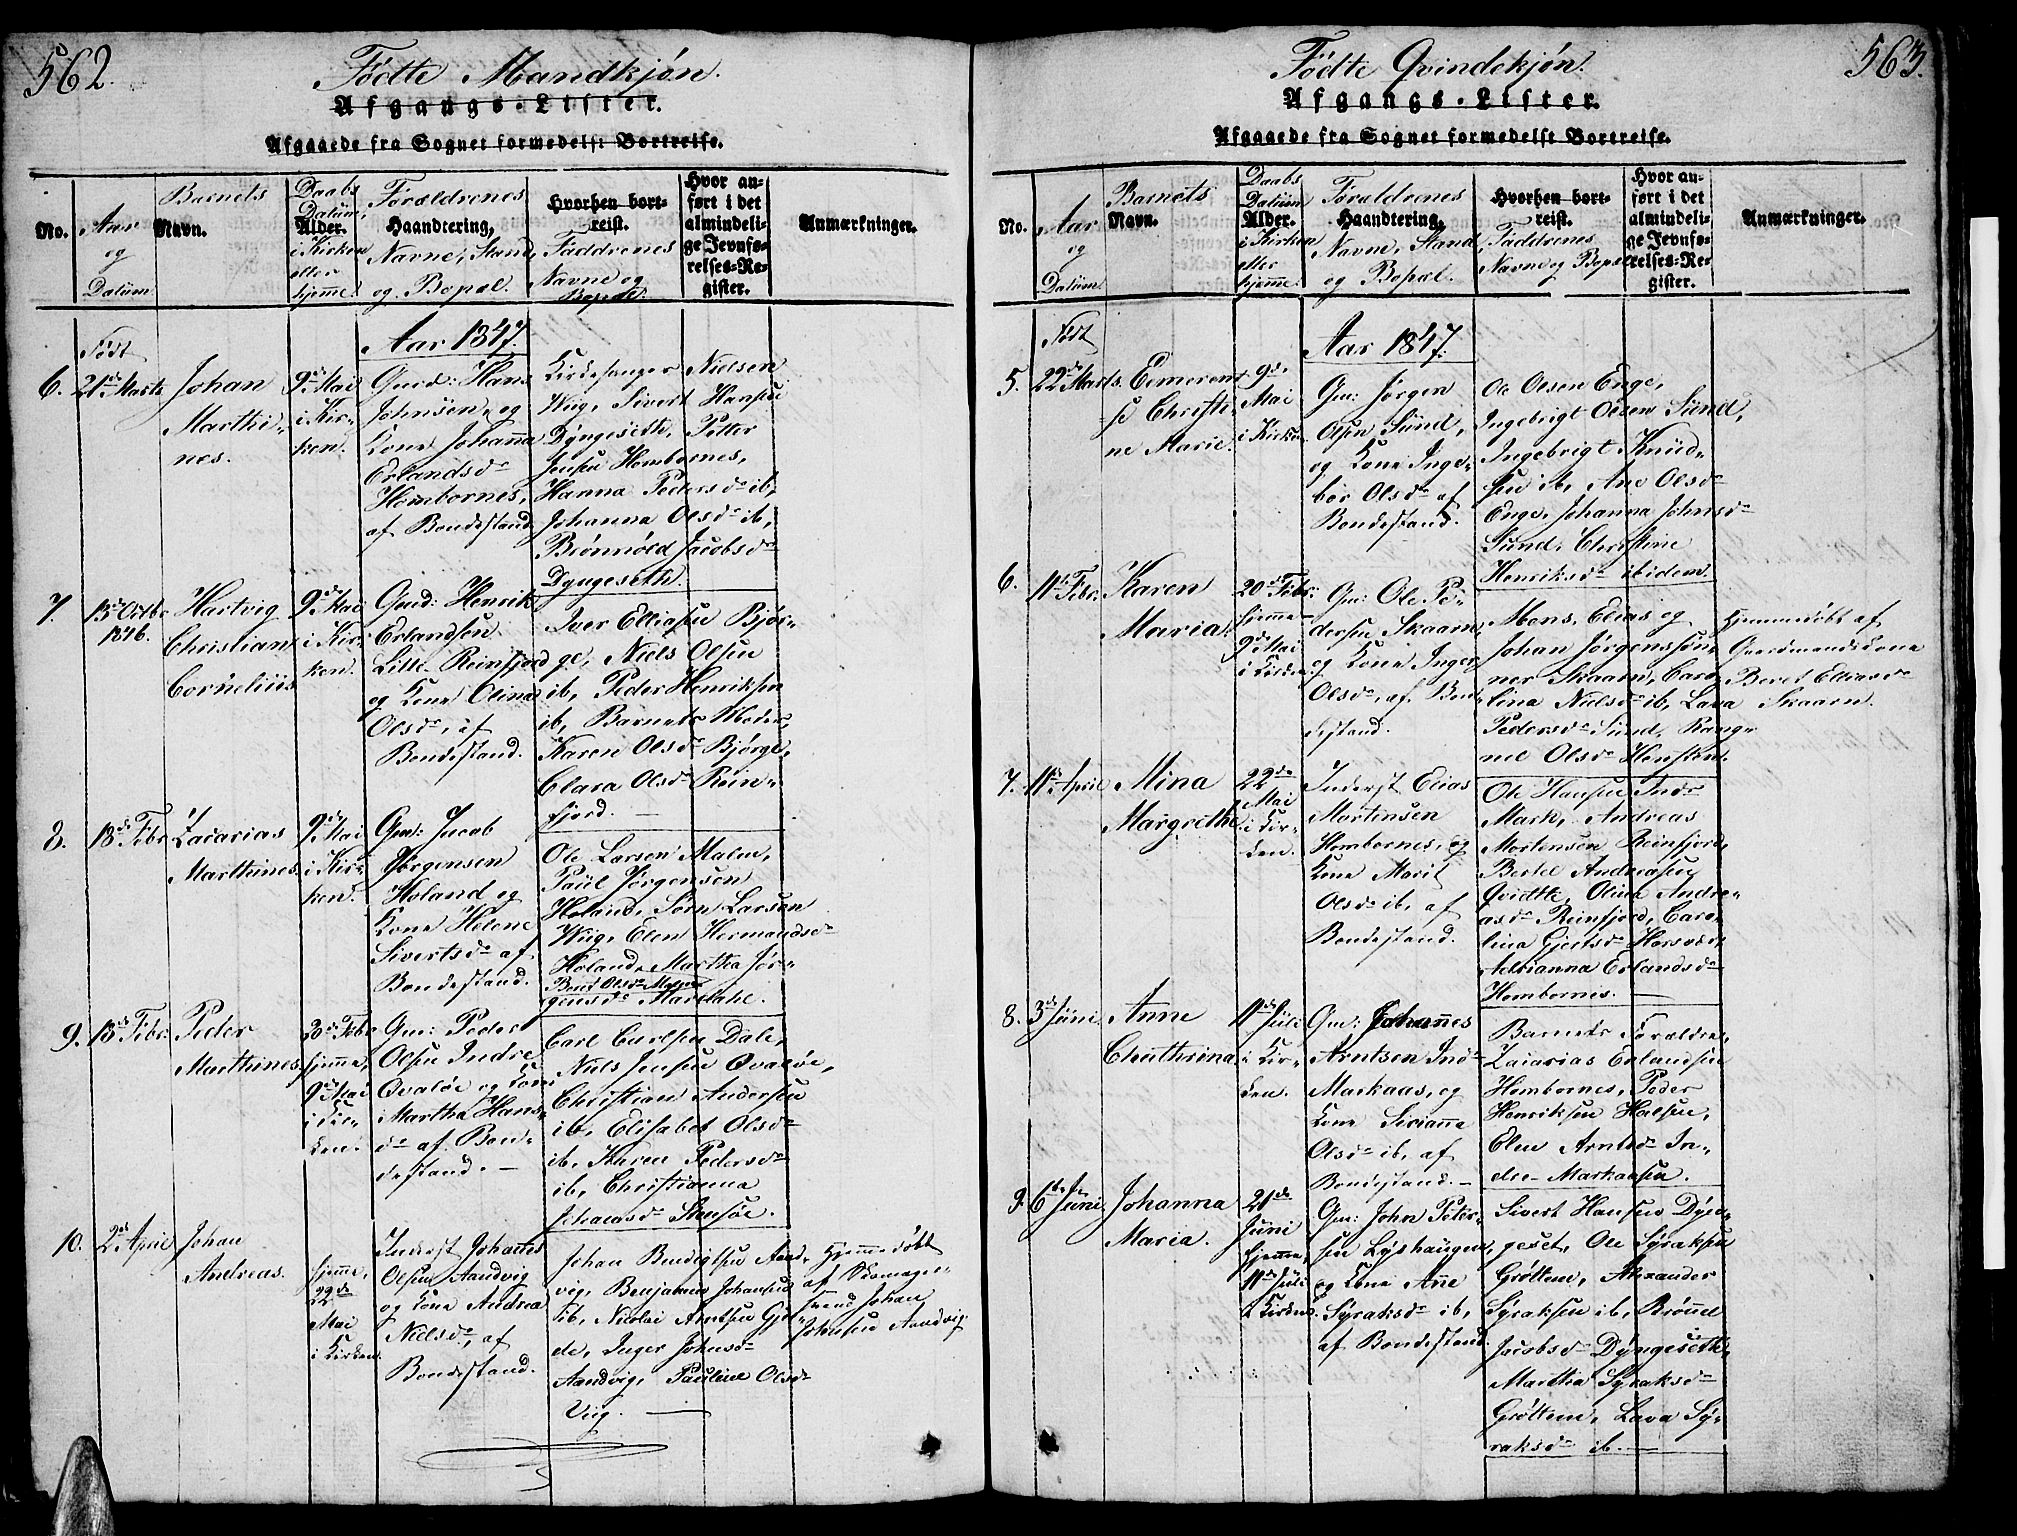 562.
Fødte Mandkjøn.
Afgangs-Lister.
Afgaaede fra Sognet formedelst Bortreise.
No.
Aar og Datum.
Barnets Navn.
Daabs Datum, Alder. i Kirken eller hjemme.
Forældrenes Haandtering, Navne, Stand og Bopæl.
Hvorhen bortreist. Faddrenes Navne og Bopæl.
Hvor anført i det almindelige Jevnførelses-Register.
Anmærkninger.
Født
Aar 1847.
6.
21de Marts
Johan
Marthi-
nes.
9de Mai
i Kir-
ken.
Gmd: Hans
Johnsen og
Kone Johanna
Erlandsd
Hombornes,
af Bondestand
Kirkesanger Nielsen
Wiig, Sivert Hansen
Dyngeseth, Petter
Jensen Hombornes,
Hanna Pedersd ib,
Johanna Olsd ib,
Brønnöld Jacobsd
Dyngeseth.
7.
13de Octbr
1846.
Hartvig
Christian
Cornelius
9de Mai
i Kir-
ken.
Gmd: Henrik
Erlandsen
Lille Reinfjord
og Kone Olina
Olsd, af
Bondestand.
Iver Elliasen Bjør-
ge, Niels Olsen
ib, Peder Henriksen
ib, Barnets Moder,
Karen Olsd Bjørge,
Clara Olsd Rein-
fjord.
8.
18de Febr
Zacarias
Marthines
9de Mai
i Kir-
ken.
Gm: Jacob
Jørgensen
Holand og
Kone Helene
Sivertsd af
Bondestand.
Ole Larsen Malm,
Paul Jørgensen
Holand, Sørn Larsen
Wiig, Elen Hermandsd
Holand, Martha Jør-
gensd Mardahl.
9.
13de Febr.
Peder
Marthines
hjemme,
9de Mai
i Kir-
ken.
Gm: Peder
Olsen Indre
Qvaløe og Kone
Martha Hans-
d af Bon-
destand.
Carl Carlsen Dale,
Niels Jensen Qvaløe,
Christian Andersen
ib, Elisabet Olsd
ib, Karen Pedersd
ib, Christianna
10.
2de April
Johan
Andreas.
hjemme,
22de
Mai
i Kirken.
Inderst Johannes
Olsen Aandvig
og Kone Andrea
Nielsd, af
Bondestand.
Johan Bendigtsen Aand-
vig, Benjamin Johansen
ib, Nicolai Arntsen Gjel-
de, Inger Johnsd
Aandvig, Pauline Olsd
Viig.
Hjemmedøbt
af Skomager-
svend Johan
Johnsen Aandvig
563.
Fødte Qvindekjøn.
Afgangs-Lister.
Afgaaede fra Sognet formedelst Bortreise.
No.
Aar og Datum.
Barnets Navn.
Daabs Datum Alder. i Kirken eller hjemme.
Forældrenes Haandtering, Navne, Stand og Bopæl.
Hvorhen bortreist. Faddrenes Navne og Bopæl.
Hvor anført i det almindelige Jevnførelses-Register.
Anmærkninger.
Født
Aar 1847.
5.
22de Marts.
Emerent-
se Christi-
ne Marie.
9de
Mai
i Kirken
Gm: Jørgen
Olsen Sund,
og Kone Inge-
bor Olsd af
Bondestand.
Ole Olsen Enge,
Ingebrigt Olsen Sund,
Ingebrigt Knud-
sen ib, Ane Olsd
Enge, Johanna Johnsd
Sund, Christine
Henriksd ibidem.
6.
11te Febr.
Karen
Maria.
20de Febr.
hjemme
9de Mai
i Kirken.
Gm: Ole Pe-
dersen Skaarn
og Kone Inger
Olsd, af Bon-
destand.
Mons, Elias og
Johan Jørgenssøn-
ner Skaarn, Caro-
lina Nielsd ib, Lava
Pedersd Sund, Rang-
nel Olsd
Hjemmedøbt af
Gaardmandskone
Beret Eliasd
Skaarn.
7.
11te April
Mina
Margrethe
22de
Mai
i Kir-
ken.
Inderst Elias
Mortensen
Hombornes, og
Kone Marit
Olsd ib, af
Bondestand.
Ole Hansen Ind-
Mark, Andreas
Mortensen Reinfjord,
Bertel Andreasen
Qvidtle, Olina Andre-
asd Reinfjord, Caro-
lina Gjertsd
Adrianna Erlandsd
Hombornes.
8.
3de Juni.
Anne
Chathrina
11te Juli
i Kir-
ken.
Gm: Johannes
Arntsen Ind-
Markaas, og
Kone Sirianna
Olsd ib, af
Bondestand.
Barnets Forældre,
Zacarias Erlandsen
Hombornes, Peder
Henriksen Halsen,
Elen Arntsd In-
dre Markaasen.
9.
6te Juni.
Johanna
Maria.
21de
Juni
hjemme,
11te Juli
i Kirken.
Gm: John Peter-
sen Lyshaugen,
og Kone Ane
Syraksd ib,
af Bondestand.
Sivert Hansen Dyn-
geset, Ole Syraksen
Grøttem, Alexander
Syraksen ib, Brønnel
Jacobsd Dyngeseth,
Martha Syraksd
Grøttem, Lava Sy-
raksd ib.